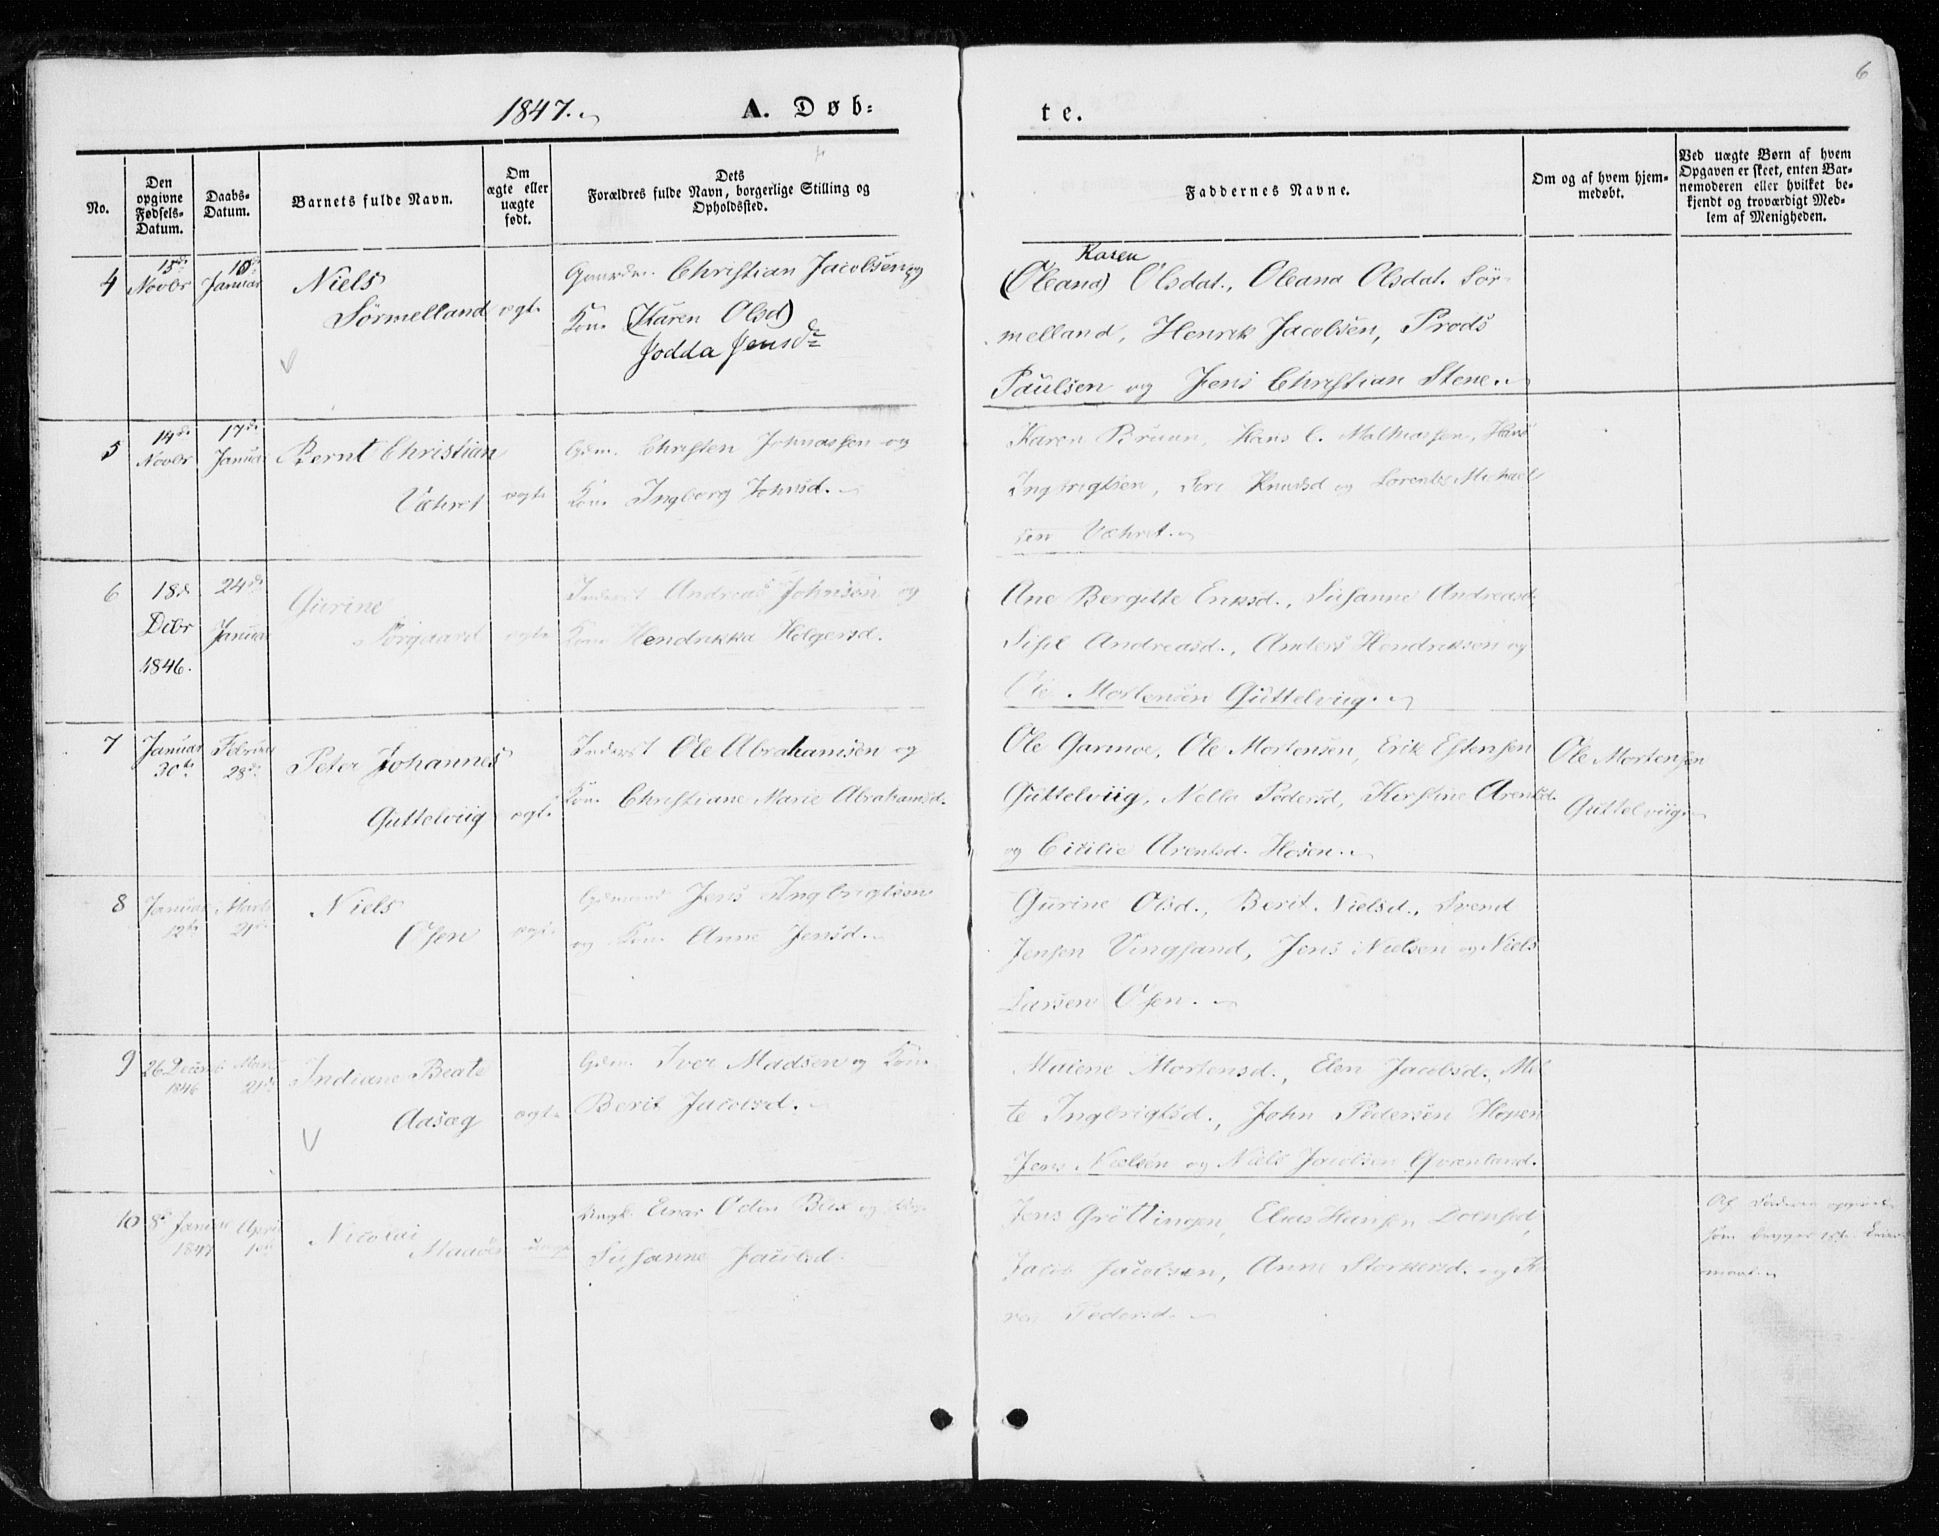 6
1847.
A. Døb:
te.
No.
Den opgivne Fødsels-Datum.
Daabs-Datum.
Barnets fulde Navn.
Om ægte eller uægte født.
Dets Forældres fulde Navn, borgerlige Stilling og Opholdssted.
Faddernes Navne.
Om og af hvem hjemmedøbt.
Ved uægte Børn af hvem Opgaven er skeet, enten Barnemoderen eller hvilket bekjendt og troværdigt Medlem af Menigheden.
4
15de Novbr
10de Januar
Niels
Sørmelland
ægte
Gaardm. Christian Jacobsen og
Kone (Karen Olsd)
Jodda Jensd
Karen
(Oleana) Olsdat., Oleana Olsdat. Sør-
melland, Henrik Jacobsen,
Paulsen og Jens Christian Stene.
5
14de Novbr
17de Januar
Bernt Christian
Væhret
ægte
Gdm. Christen Johnassen og
Kone Ingborg Johnsd.
Karen Bruun, Hans C. Mathiassen, Hans
Ingbrigtsen, Knudsd og Lorents Michael
sen Væhret.
6
18de Decbr 1846.
24de Januar
Gurine
Sørgaard
ægte
Inderst Andreas Johnsen og
Kone Hendrikka Holgersd.
Ane Bergitte Eriksd., Susanne Andreasd.
Sisel Andreasd., Anders Hendriksen og
Ole Mortensen Guttelviig.
7
Januar 30te
Februar 28de
Peter Johannes
Guttelviig
ægte
Inderst Ole Abrahamsen og
Kone Christiane Marie Abrahamsd.
Ole Garmoe, Ole Mortensen, Erik Estensen
Guttelviig, Nella Pedersd, Kirstine Arentsd.
og Cicilie Arentsd. Hosen.
Ole Mortensen
Guttelviig
8
Januar 12te
Marts 21de
Niels
Osen
ægte
Gdmand Jens Ingbrigtsen
og Kone Anne Jensd.
Gurine Olsd., Berit Nielsd., Svend
Jensen Vingsand, Jens Nielsen og Niels
Larsen Osen.
9
26 Decemb 1846
Marts 21de
Indiane Beate
Aasæg
ægte
Gdm. Iver Madsen og Kone
Berit Jacobsd.
Mortensd., Elen Jacobsd., Met
te Ingbrigtsd., John Pedersen Hopen
Jens Nielsen og Niels Jacobsen Qvenland.
10
8de Januar 1847
April
Nicolai
uægte
Ungk. Oden og Pige
Susanne Paulsd.
Jens Grøttingen, Elias Hansen
Jacob Jacobsen, Anne Storkersd. og Ka
ren Pedersd.
Af Faderen opgivet
som begges 1ste Leier-
maal.